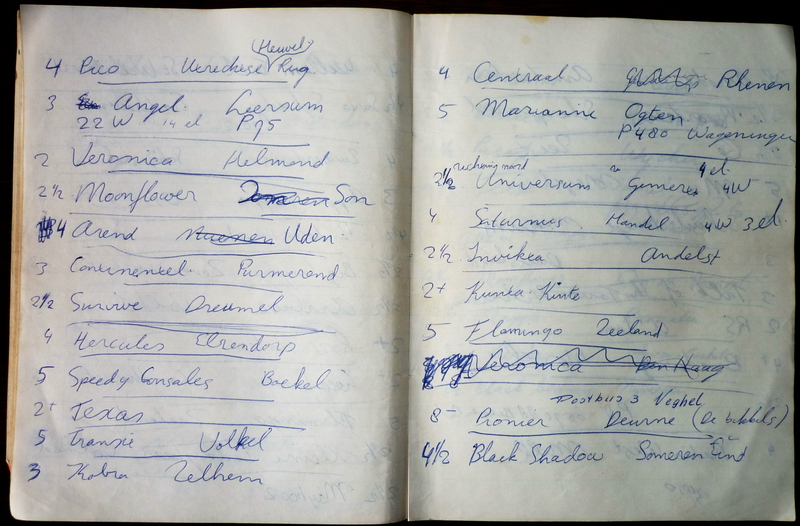 (Heuvel)
4 Pico Utrechtse Rug
3 Angel. Leersum
22 W 14 el P75
2 Veronica Helmond
2 1/2 Moonflower Someren Son
4 Arend Uden
3 Continentel. Purmerend
2 1/2 Survive Dreumel
4 Hercules Elrendorp
5 Speedy Gonsales Boekel
2+ Texas
5 Transie Volkel
3 Kobra Zelhem
4 Centraal Rhenen
5 Marianne Ogten
P480 Wageningen
4 el.
2 1/2 Universum Gemeret 4W
4 Saturnus Handel 4W 3 el.
2 1/2 Invikta Andelst
2+ Kunta Kinte
5 Flamingo Zeeland
Veronica Den Haag
Postbus 3 Veghel
8- Pionier Deurne (de bikkels)
4 1/2 Black Shadow Someren Eind